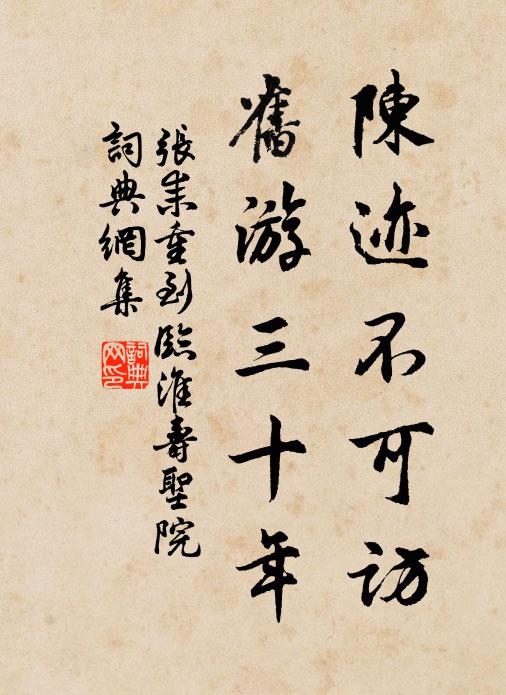 陳迹不可訪
舊游三十年
張耒重到臨淮壽聖院
詞典網集
詞典网印